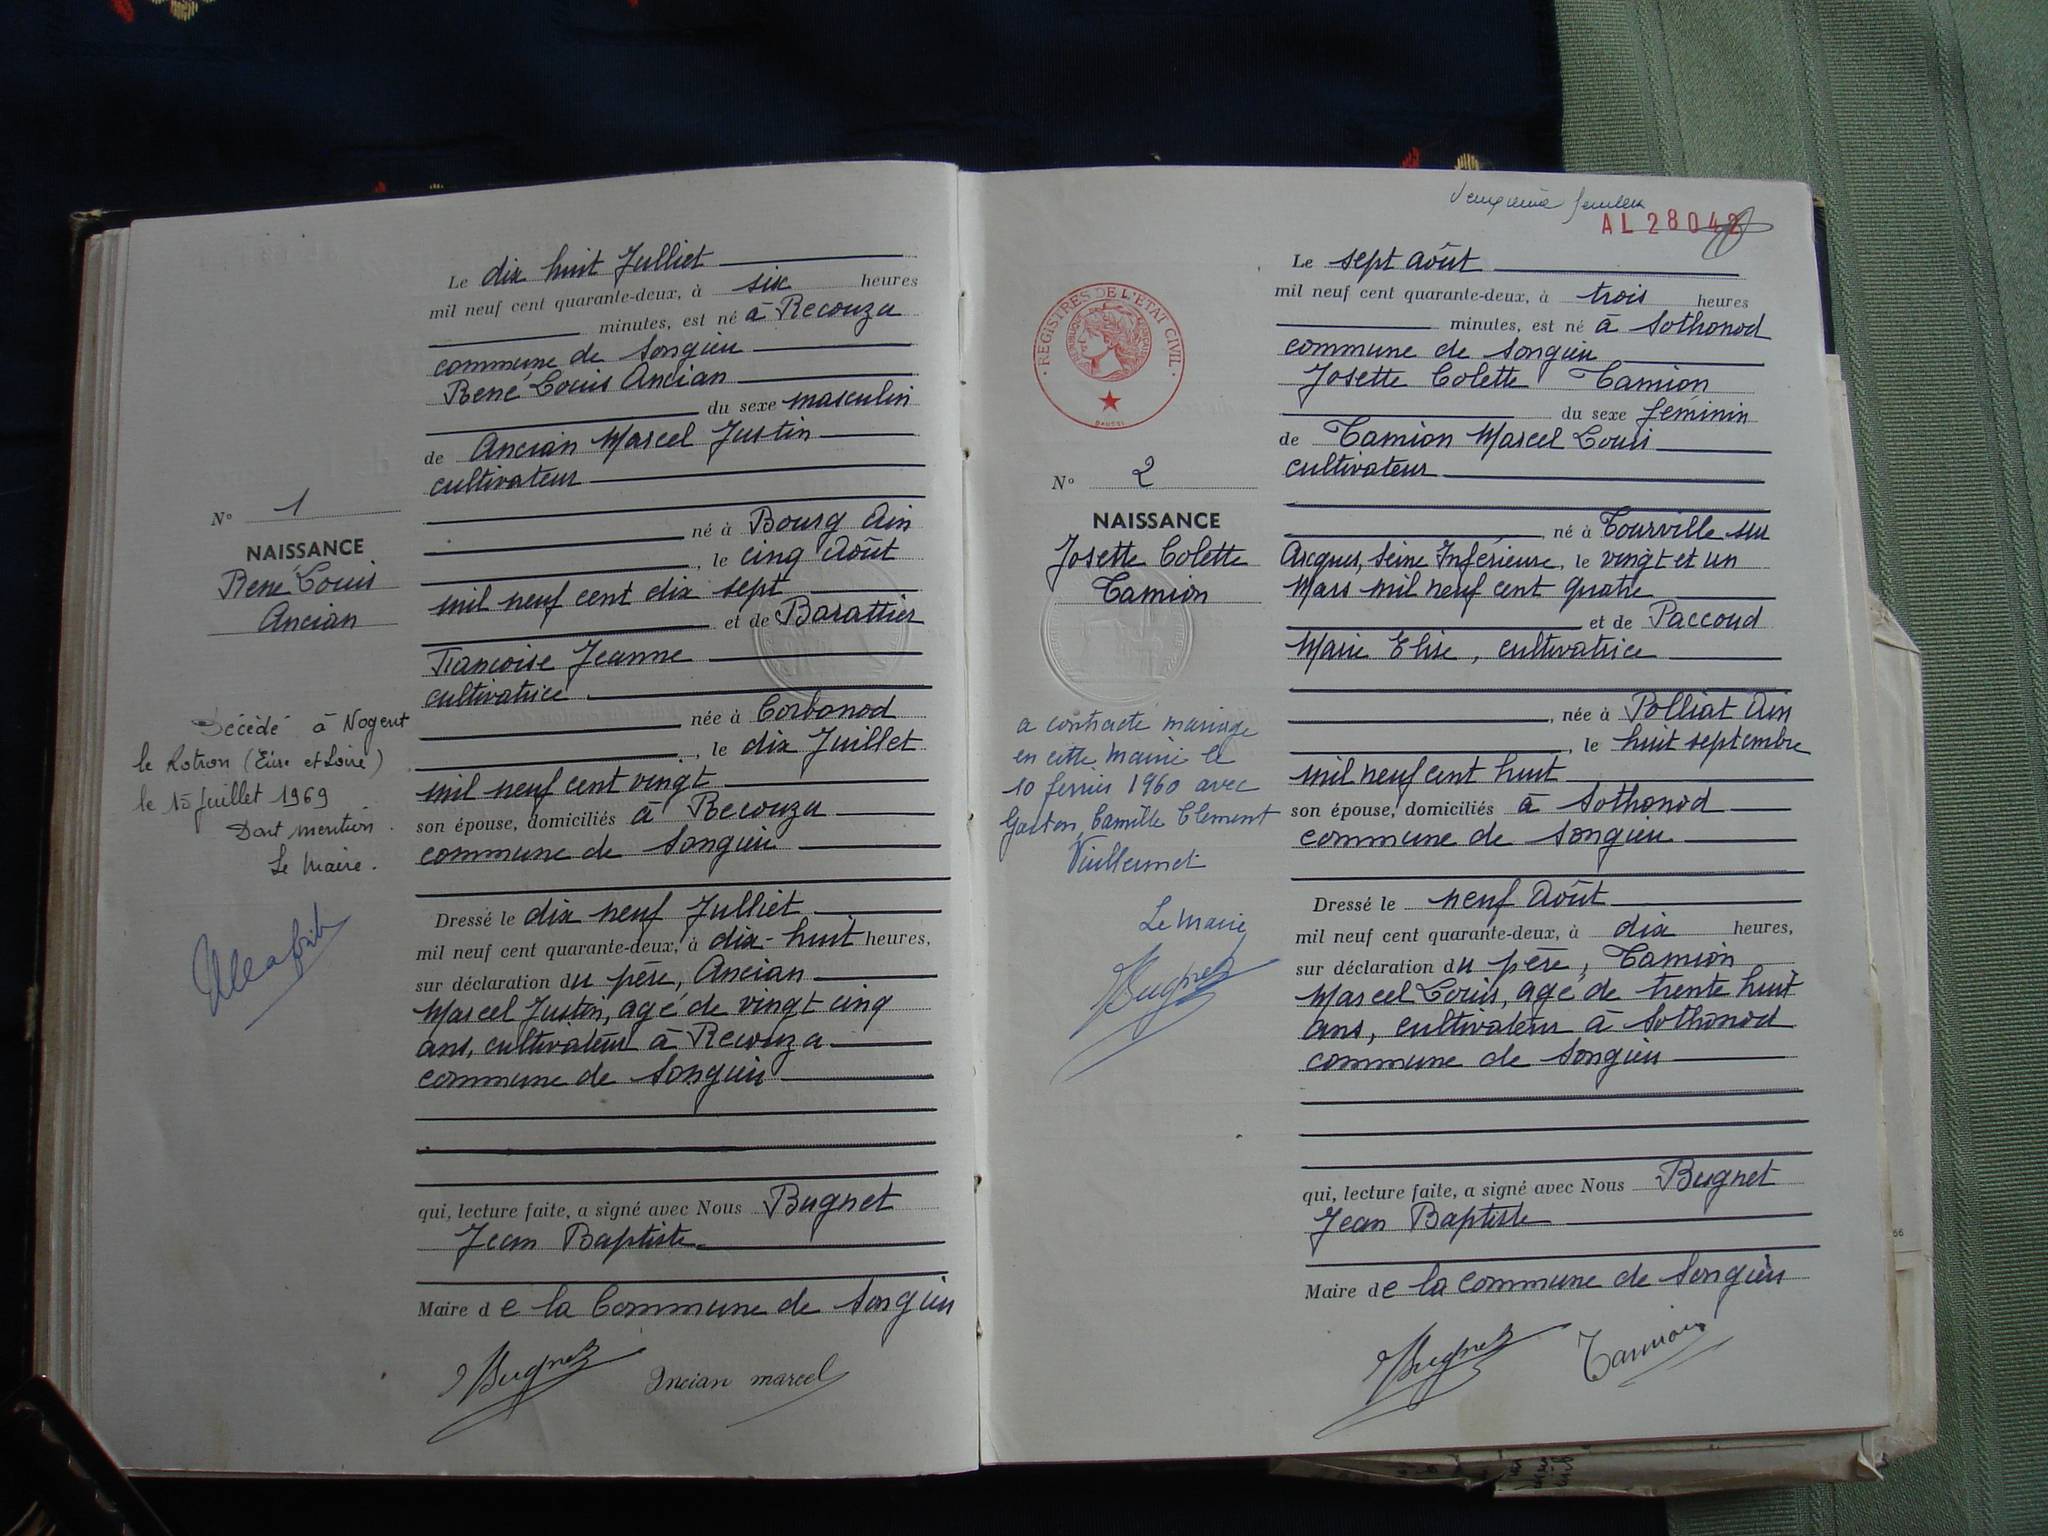 Le dix huit Julliet
mil neuf cent quarante-deux, à six heures
minutes, est né à Recouza
commune de Songieu
René Louis Ancian
du sexe masculin
de Ancian Marcel Justin
cultivateur
né à Bourg Ain
, le cinq Août
mil neuf cent dix sept
et de Barattier
Francoise Jeanne
cultivatrice
née à Corbonod
, le dix Juillet
mil neuf cent vingt
son épouse, domiciliés à Recouza
commune de Songieu
Dressé le dix neuf Julliet
mil neuf cent quarante-deux, à dix-huit heures,
sur déclaration du père, Ancian
Marcel Justin, agé de vingt cinq
ans, cultivateur à Recouza
commune de Songieu
qui, lecture faite, a signé avec Nous Bugnet
Jean Baptiste
Maire de la Commune de Songieu
Bugnet Ancian marcel
N° 1
NAISSANCE
René Louis
Ancian
Décédé à Nogent
le Rotrou (Eure et Loire)
le 15 Juillet 1969
Dont mention.
Le Maire.
AL28042
Le sept août
mil neuf cent quarante-deux, à trois heures
minutes, est né à Sothonod
commune de Songieu
Josette Colette Tamion
du sexe féminin
de Tamion Marcel Louis
cultivateur
né à Tourville sur
Arcques, Seine Inférieure, le vingt et un
Mars mil neuf cent quatre
et de Paccoud
Marie Elise, cultivatrice
, née à Polliat Ain
, le huit septembre
mil neuf cent huit
son épouse, domiciliés à Sothonod
commune de Songieu
Dressé le neuf Août
mil neuf cent quarante-deux, à dix heures,
sur déclaration du père, Tamion
Marcel Louis, agé de trente huit
ans, cultivateur à Sothonod
commune de Songieu
qui, lecture faite, a signé avec Nous Bugnet
Jean Baptiste
Maire de la commune de Songieu
Bugnet Tamion
REGISTRES DE L'ETAT CIVIL
N° 2
NAISSANCE
Josette Colette
Tamion
a contracté mariage
en cette mairie le
10 fevrier 1960 avec
Gaston, Camille Clement
Vuillermet
Le Maire
Bugnet
66